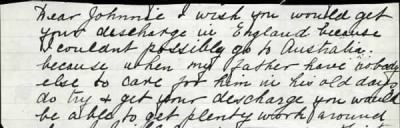 Dear Johnnie I wish you would get
your discharge in England because
I couldnt possibly go to Australia.
because when my father have nobody
else to care for him in his old days
do try & get your discharge you would
be able to get plenty work around